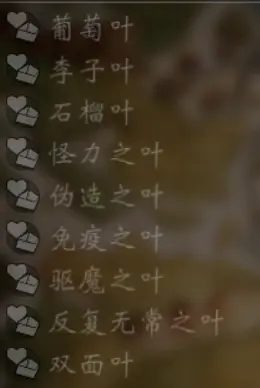 葡萄叶
李子叶
石榴叶
怪力之叶
伪造之叶
免疫之叶
驱魔之叶
反复无常之叶
双面叶